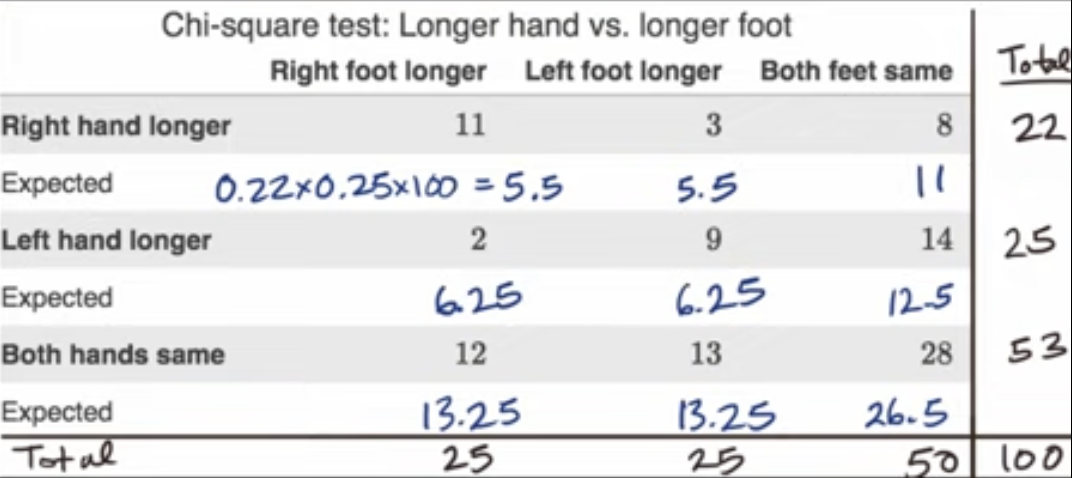 Chi-square test: Longer hand vs. longer foot
Right foot longer Left foot longer Both feet same Total
Right hand longer 11 3 8 22
Expected 0.22×0.25×100 = 5.5 5.5 11
Left hand longer 2 9 14 25
Expected 6.25 6.25 12.5
Both hands same 12 13 28 53
Expected 13.25 13.25 26.5
Total 25 25 50 100